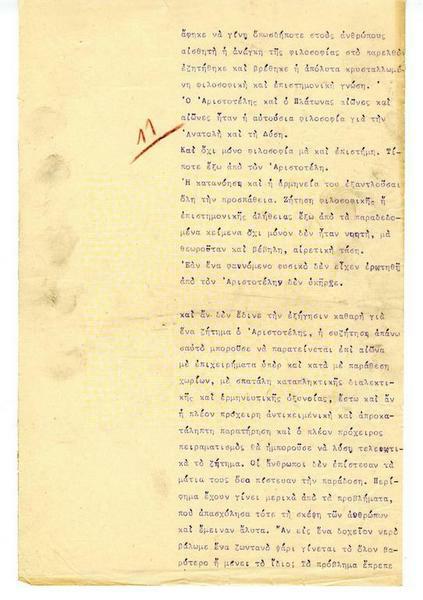 ἄφηκε νὰ γίνῃ ὁπωσδήποτε στοὺς ἀνθρώπους
αἰσθητὴ ἡ ἀνάγκη τῆς φιλοσοφίας στὸ παρελθὸν
ἐζητήθηκε καὶ βρέθηκε ἡ ἀπόλυτα κρυσταλλωμέ
νη φιλοσοφικὴ καὶ ἐπιστημονικὴ γνώση.
Ὁ Ἀριστοτέλης καὶ ὁ Πλάτωνας αἰῶνες καὶ
αἰῶνες ἦταν ἡ αὐτούσια φιλοσοφία γιὰ τὴν
Ἀνατολὴ καὶ τὴ Δύση.
11
Καὶ ὄχι μόνο φιλοσοφία μὰ καὶ ἐπιστήμη. Τί
ποτε ἔξω ἀπὸ τὸν Ἀριστοτέλη.
Ἡ κατανόηση καὶ ἡ ἑρμηνεία του ἐξαντλοῦσαν
ὅλη τὴν προσπάθεια. Ζήτηση φιλοσοφικῆς ἤ
ἐπιστημονικῆς ἀλήθειας ἔξω ἀπὸ τὰ παραδεδο
μένα κείμενα ὄχι μόνον δὲν ἦταν νοητή, μὰ
θεωροῦταν καὶ βέβηλη, αἱρετικὴ τάση.
Ἐὰν ἕνα φαινόμενο φυσικὸ δὲν εἶχεν ἐρωτηθῇ
ἀπὸ τὸν Ἀριστοτέλην δὲν ὑπῆρχε.
καὶ ἄν δὲν ἔδινε τὴν ἐξήγησιν καθαρὴ γιὰ
ἕνα ζήτημα ὁ Ἀριστοτέλης, ἡ συζήτηση ἀπάνω
σαὐτὸ μποροῦσε νὰ παρατείνεται ἐπὶ αἰῶνα
μὲ ἐπιχειρήματα ὑπὲρ καὶ κατὰ μὲ παράθεση
χωρίων, μὲ σπατάλη καταπληκτικῆς διαλεκτι
κῆς καὶ ἑρμηνευτικῆς ὀξυνοίας, ἔστω καὶ ἄν
ἡ πλέον πρόχειρη ἀντικειμενικὴ καὶ ἀπροκα
τάληπτη παρατήρηση καὶ ὁ πλέον πρόχειρος
πειραματισμὸς θὰ ἠμποροῦσε νὰ λύσῃ τελειωτι
κὰ τὸ ζήτημα. Οἱ ἄνθρωποι δὲν ἐπίστευαν τὰ
μάτια τους ὅσο πίστευαν τὴν παράδοση. Περί
φημα ἔχουν γίνει μερικὰ ἀπὸ τὰ προβλήματα,
ποὺ ἀπασχόλησα τότε τὴ σκέψη τῶν ἀνθρώπων
καὶ ἔμειναν ἄλυτα. Ἂν εἰς ἕνα δοχεῖον νερὸ
βάλωμε ἕνα ζωντανὸ ψάρι γίνεται τὸ ὅλον βα
ρύτερο ἤ μένει τὸ ἴδιο; Τὸ πρόβλημα ἔπρεπε